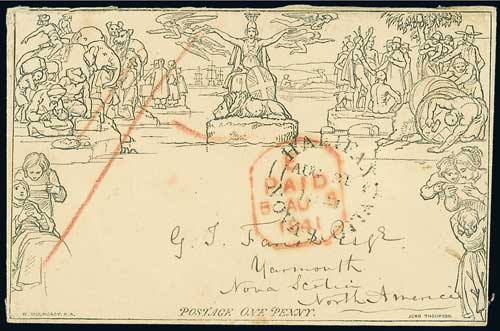 HALIFAX
AUG 21
PAID
AU
1841
G. T. Esqr.
Yarmouth
Nova Scotia
North America
W. MULREADY, R.A.
POSTAGE ONE PENNY.
JOHN THOMPSON.